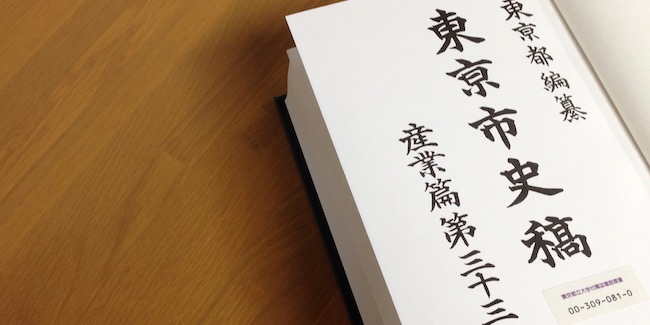 東京都編纂
東京市史稿
産業篇第三十三
東京都立大学付属図書館
00-309-081-0